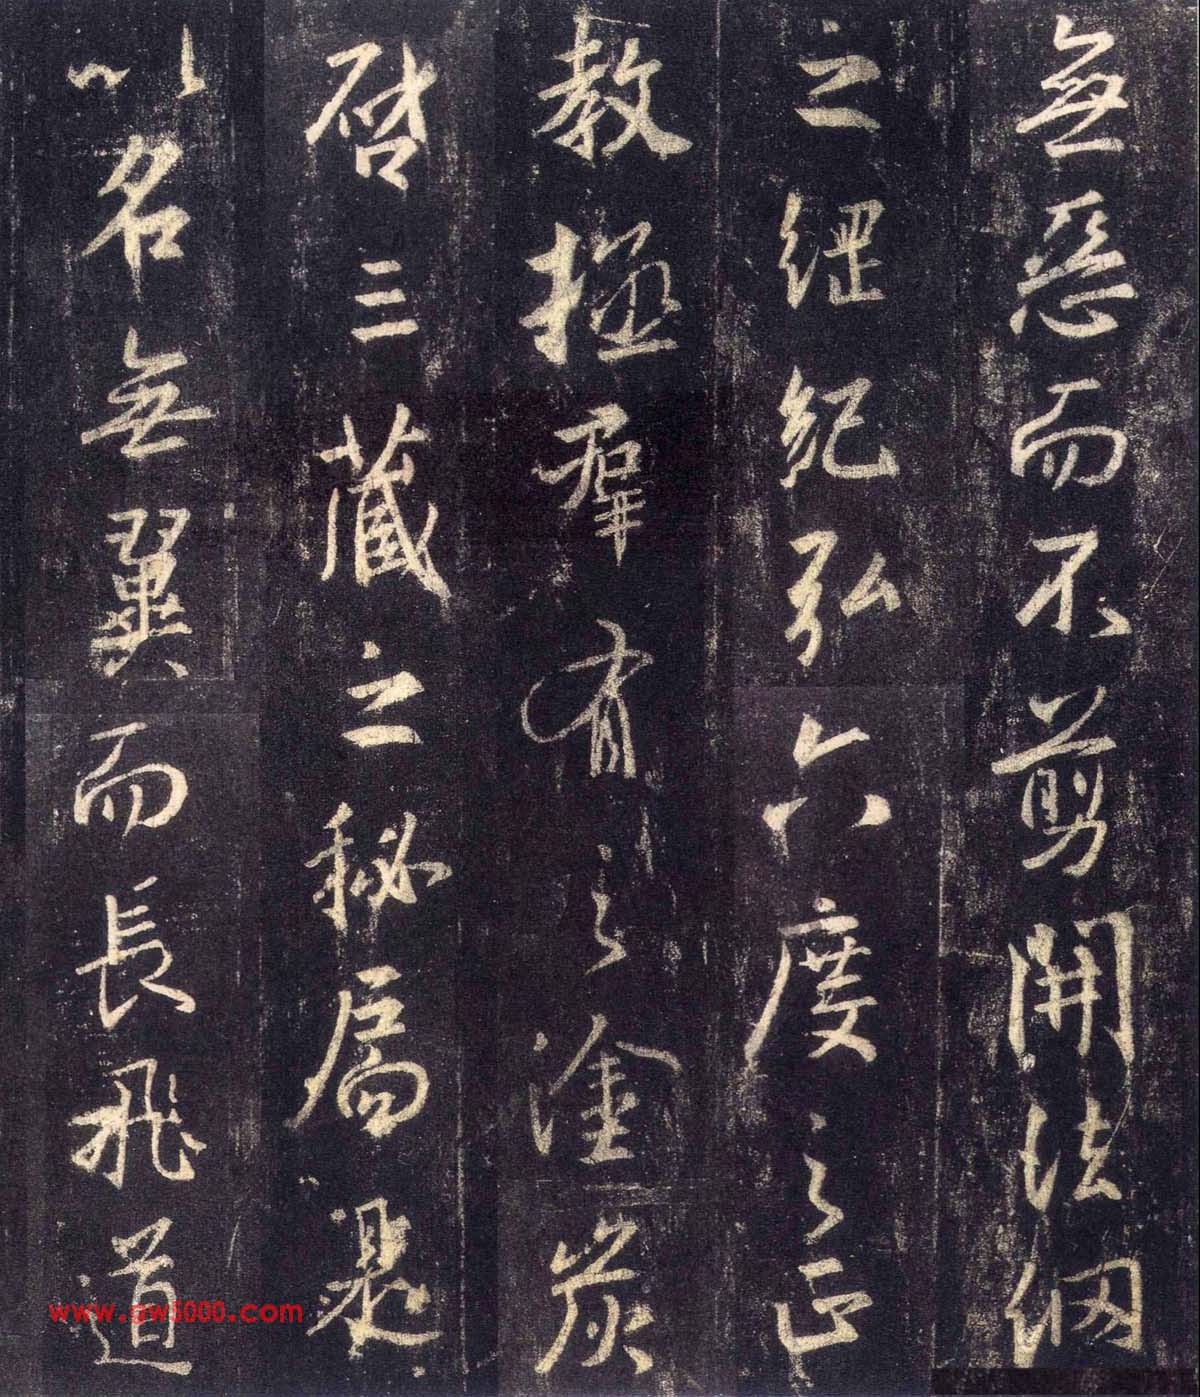 無惡而不剪開法網
之綱紀弘六度之正
教拯羣有之塗炭
啓三藏之秘扃是
以名無翼而長飛道
www.gw5000.com